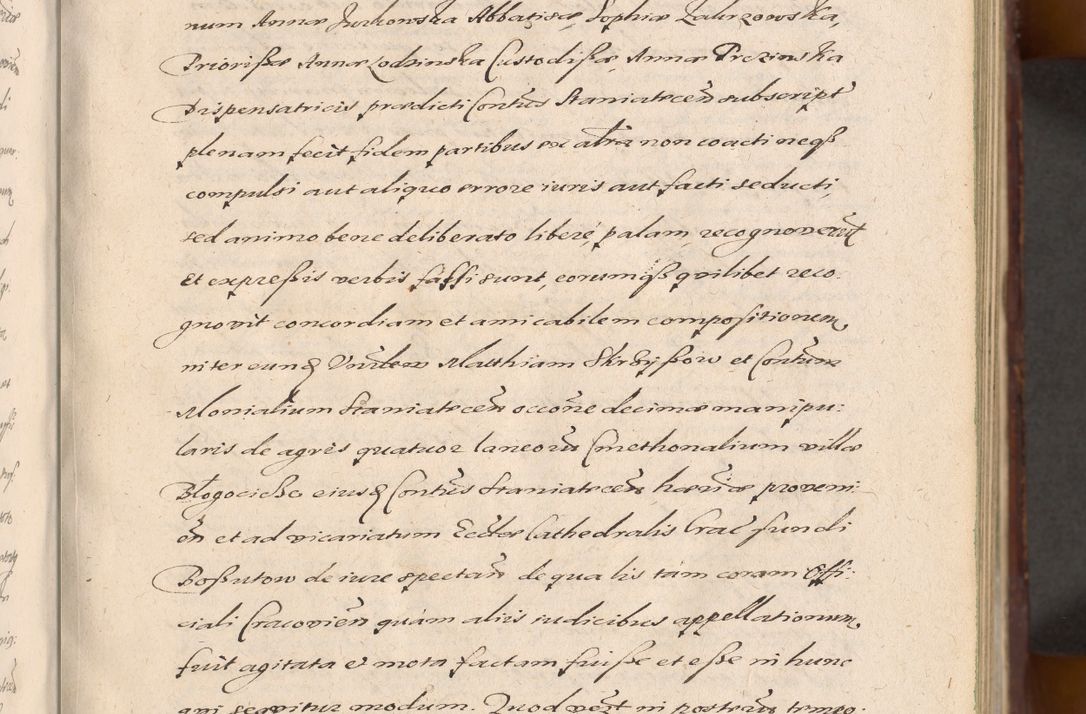 num Annæ Jurkowska Abbatissæ, Sophiæ Zakrzowska,
Priorißæ Annæ Lodzinska Custodißæ, Annæ Przinska
Dispensatricis prædicti Contūs Staniatecen̄ subscript
plenam fecit fidem partibus ex altra non coacti neqß
compulsi aut aliquo errore iuris aut facti seducti,
sed animo bene deliberato liberé, palam, recognoverūt
Et expreßis verbis faßi sunt, eorumqß quilibet reco:
gnovit concordiam et amicabilem compositionem,
inter eund Matthiam Skrzyßow et Contum
Monialium Staniatecen̄ occōne decimæ manipu:
laris de agris quatuor laneorū Cmethonalium villæ
Blogociche eiusd Contūs Staniatecen̄ hæredæ proveni:
en̄ et ad vicariatum Eccles Cathedralis Crac fundi
Boßutow de iure spectan̄ de qua lis tam coram Offi:
ciali Cracovien̄ quám aliis iudicibus appellationum,
fuit agitata et mota factam fuiße et eße in hunc
qui sequitur modum. Quod in posterum tempo: